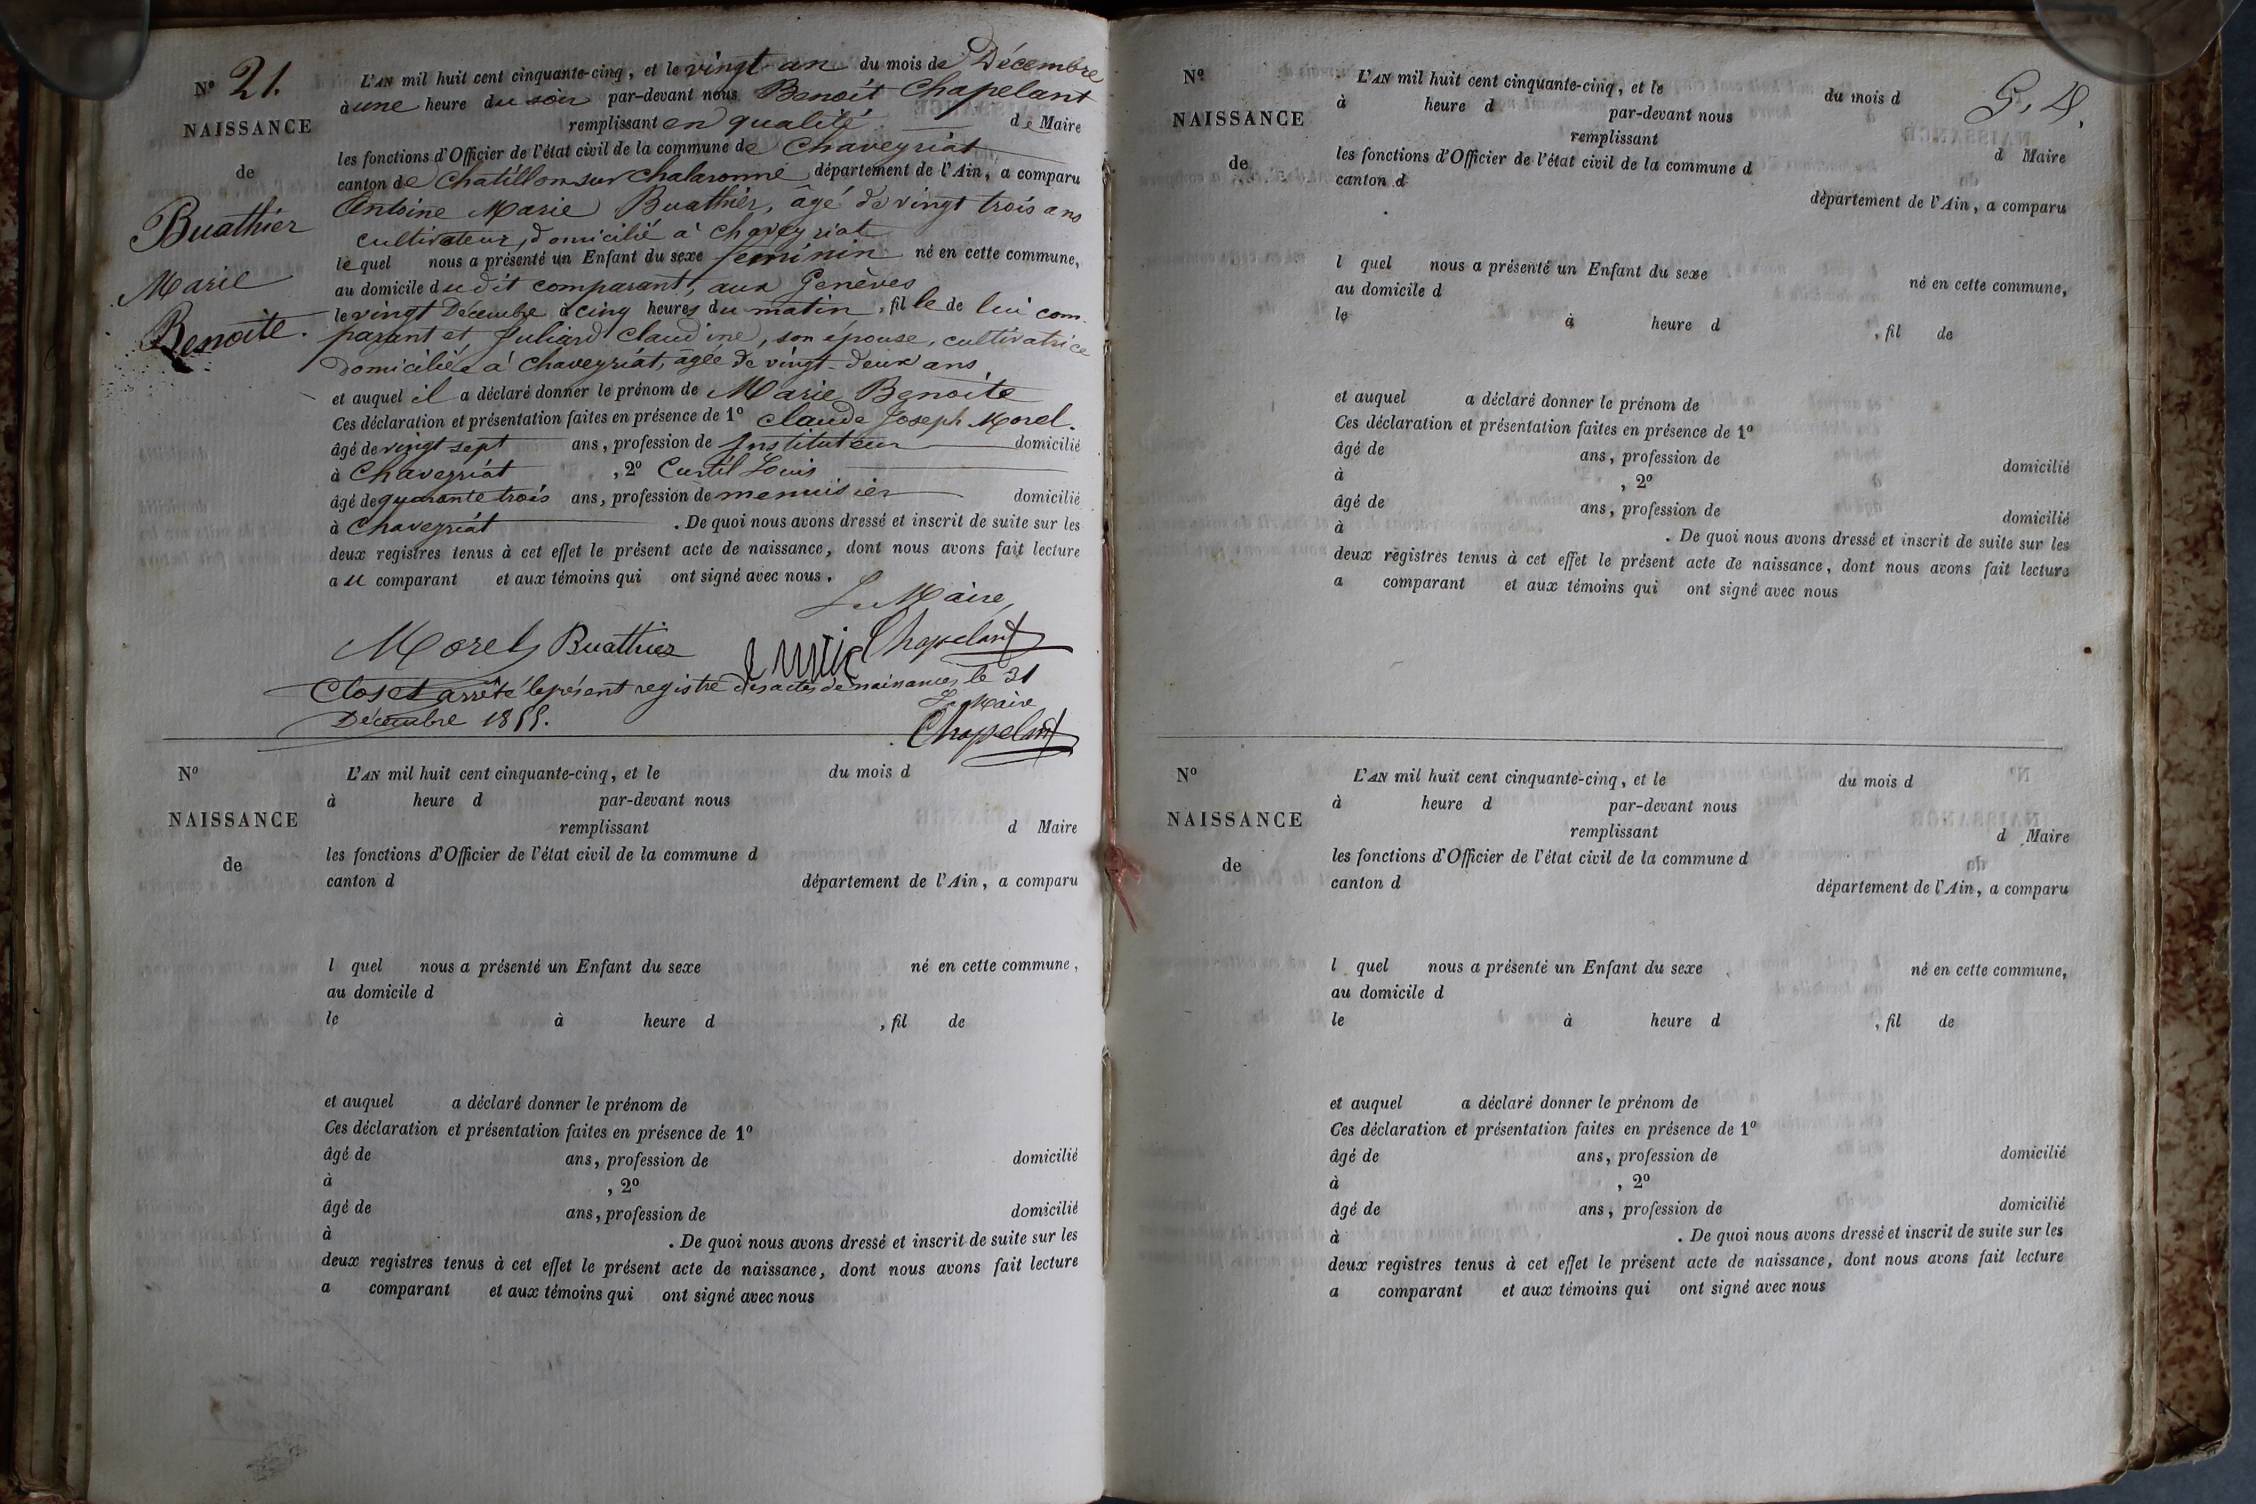 Nº 21.
NAISSANCE
de
Buathier
Marie
Benoite.
L'AN mil huit cent cinquante-cinq, et le vingt un du mois de Décembre
à une heure du soir par-devant nous Benoit Chapelant
remplissant en qualité de Maire
les fonctions d'Officier de l'état civil de la commune de Chaveyriat
canton de Chatillon sur Chalaronne département de l'Ain, a comparu
Antoine Marie Buathier, âgé de vingt trois ans
cultivateur, domicilié à Chaveyriat
le quel nous a présenté un Enfant du sexe feminin né en cette commune,
au domicile dudit comparant, aux Genèves
le vingt Décembre à cinq heures du matin, fille de lui com-
parant et Juliard Claudine, son épouse, cultivatrice
domiciliée à Chaveyriat, âgée de vingt-deux ans
et auquel il a déclaré donner le prénom de Marie Benoite
Ces déclaration et présentation faites en présence de 1º Claude Joseph Morel.
âgé de vingt sept ans, profession de Instituteur domicilié
à Chaveyriat, 2º Curtil Louis
âgé de quarante trois ans, profession de menuisier domicilié
à Chaveyriat. De quoi nous avons dressé et inscrit de suite sur les
deux registres tenus à cet effet le présent acte de naissance, dont nous avons fait lecture
au comparant et aux témoins qui ont signé avec nous.
Le Maire,
Morel Buathier Chapelant
Clos et arrêté le présent registre des actes de naissances le 31
Décembre 1855.
Le Maire
Chapelant
Nº
NAISSANCE
de
L'AN mil huit cent cinquante-cinq, et le du mois d
à heure d par-devant nous
remplissant d Maire
les fonctions d'Officier de l'état civil de la commune d
canton d département de l'Ain, a comparu
l quel nous a présenté un Enfant du sexe né en cette commune,
au domicile d
le à heure d , fil de
et auquel a déclaré donner le prénom de
Ces déclaration et présentation faites en présence de 1º
âgé de ans, profession de domicilié
à , 2º
âgé de ans, profession de domicilié
à . De quoi nous avons dressé et inscrit de suite sur les
deux registres tenus à cet effet le présent acte de naissance, dont nous avons fait lecture
a comparant et aux témoins qui ont signé avec nous
Nº
NAISSANCE
de
L'AN mil huit cent cinquante-cinq, et le du mois d
à heure d par-devant nous
remplissant d Maire
les fonctions d'Officier de l'état civil de la commune d
canton d département de l'Ain, a comparu
l quel nous a présenté un Enfant du sexe né en cette commune,
au domicile d
le à heure d , fil de
et auquel a déclaré donner le prénom de
Ces déclaration et présentation faites en présence de 1º
âgé de ans, profession de domicilié
à , 2º
âgé de ans, profession de domicilié
à . De quoi nous avons dressé et inscrit de suite sur les
deux registres tenus à cet effet le présent acte de naissance, dont nous avons fait lecture
a comparant et aux témoins qui ont signé avec nous
Nº
NAISSANCE
de
L'AN mil huit cent cinquante-cinq, et le du mois d
à heure d par-devant nous
remplissant d Maire
les fonctions d'Officier de l'état civil de la commune d
canton d département de l'Ain, a comparu
l quel nous a présenté un Enfant du sexe né en cette commune,
au domicile d
le à heure d , fil de
et auquel a déclaré donner le prénom de
Ces déclaration et présentation faites en présence de 1º
âgé de ans, profession de domicilié
à , 2º
âgé de ans, profession de domicilié
à . De quoi nous avons dressé et inscrit de suite sur les
deux registres tenus à cet effet le présent acte de naissance, dont nous avons fait lecture
a comparant et aux témoins qui ont signé avec nous